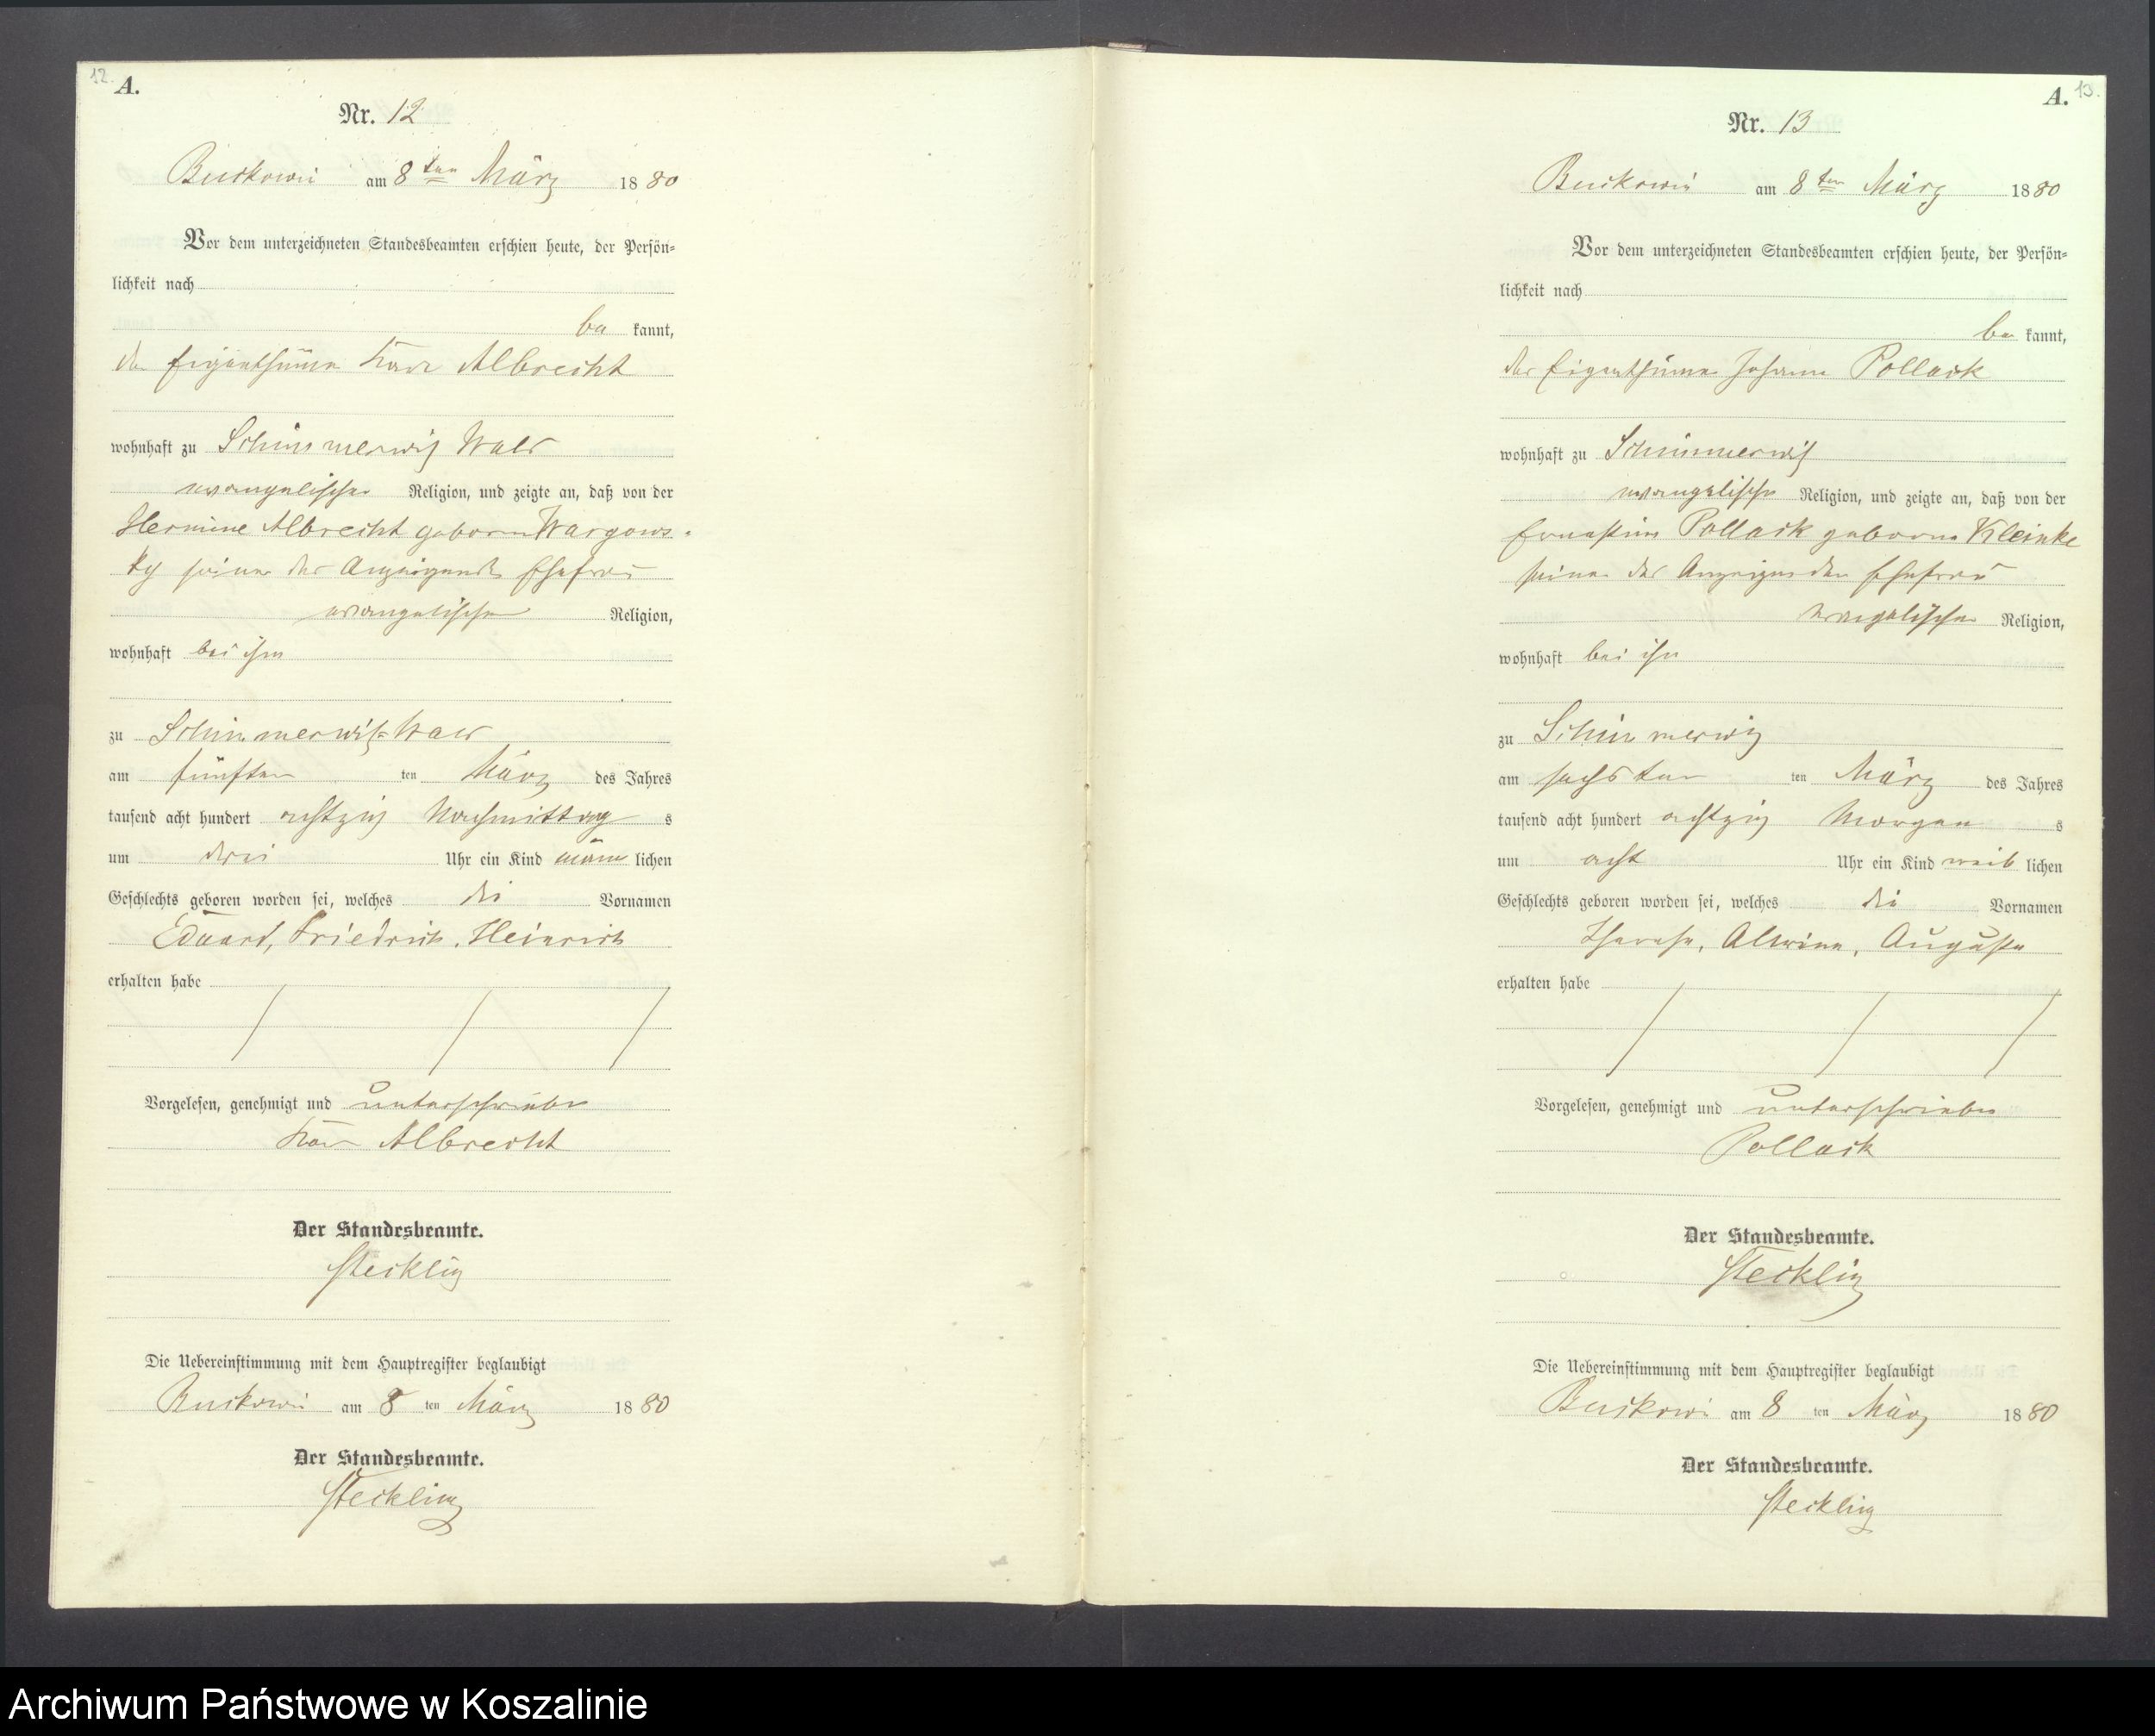 12.
A.
Nr. 12
Buckowin am 8ten März 1880
Vor dem unterzeichneten Standesbeamten erschien heute, der Persön-
lichkeit nach
be kannt,
der Eigenthümer Karl Albrecht
wohnhaft zu Schimmerwitz Wald
evangelischer Religion, und zeigte an, daß von der
Hermine Albrecht geborne Wargows-
ky seiner des Anzeigenden Ehefrau
evangelischer Religion,
wohnhaft bei ihm
zu Schimmerwitz-Wald
am fünften ten März des Jahres
tausend acht hundert achtzig Nachmittag s
um drei Uhr ein Kind männ lichen
Geschlechts geboren worden sei, welches die Vornamen
Eduard, Friedrich, Heinrich
erhalten habe
Vorgelesen, genehmigt und unterschrieben
Karl Albrecht
Der Standesbeamte.
Steckling
Die Uebereinstimmung mit dem Hauptregister beglaubigt
Buckowin am 8 ten März 1880
Der Standesbeamte.
Steckling
A.
13.
Nr. 13
Buckowin am 8ten März 1880
Vor dem unterzeichneten Standesbeamten erschien heute, der Persön-
lichkeit nach
be kannt,
der Eigenthümer Johann Pollack
wohnhaft zu Schimmerwitz
evangelischer Religion, und zeigte an, daß von der
Ernestine Pollack geborne Kleinke
seiner des Anzeigenden Ehefrau
evangelischer Religion,
wohnhaft bei ihm
zu Schimmerwitz
am sechsten ten März des Jahres
tausend acht hundert achtzig Morgen s
um acht Uhr ein Kind weib lichen
Geschlechts geboren worden sei, welches die Vornamen
Therese, Alwine, Auguste
erhalten habe
Vorgelesen, genehmigt und unterschrieben
Pollack
Der Standesbeamte.
Steckling
Die Uebereinstimmung mit dem Hauptregister beglaubigt
Buckowin am 8 ten März 1880
Der Standesbeamte.
Steckling
Archiwum Państwowe w Koszalinie